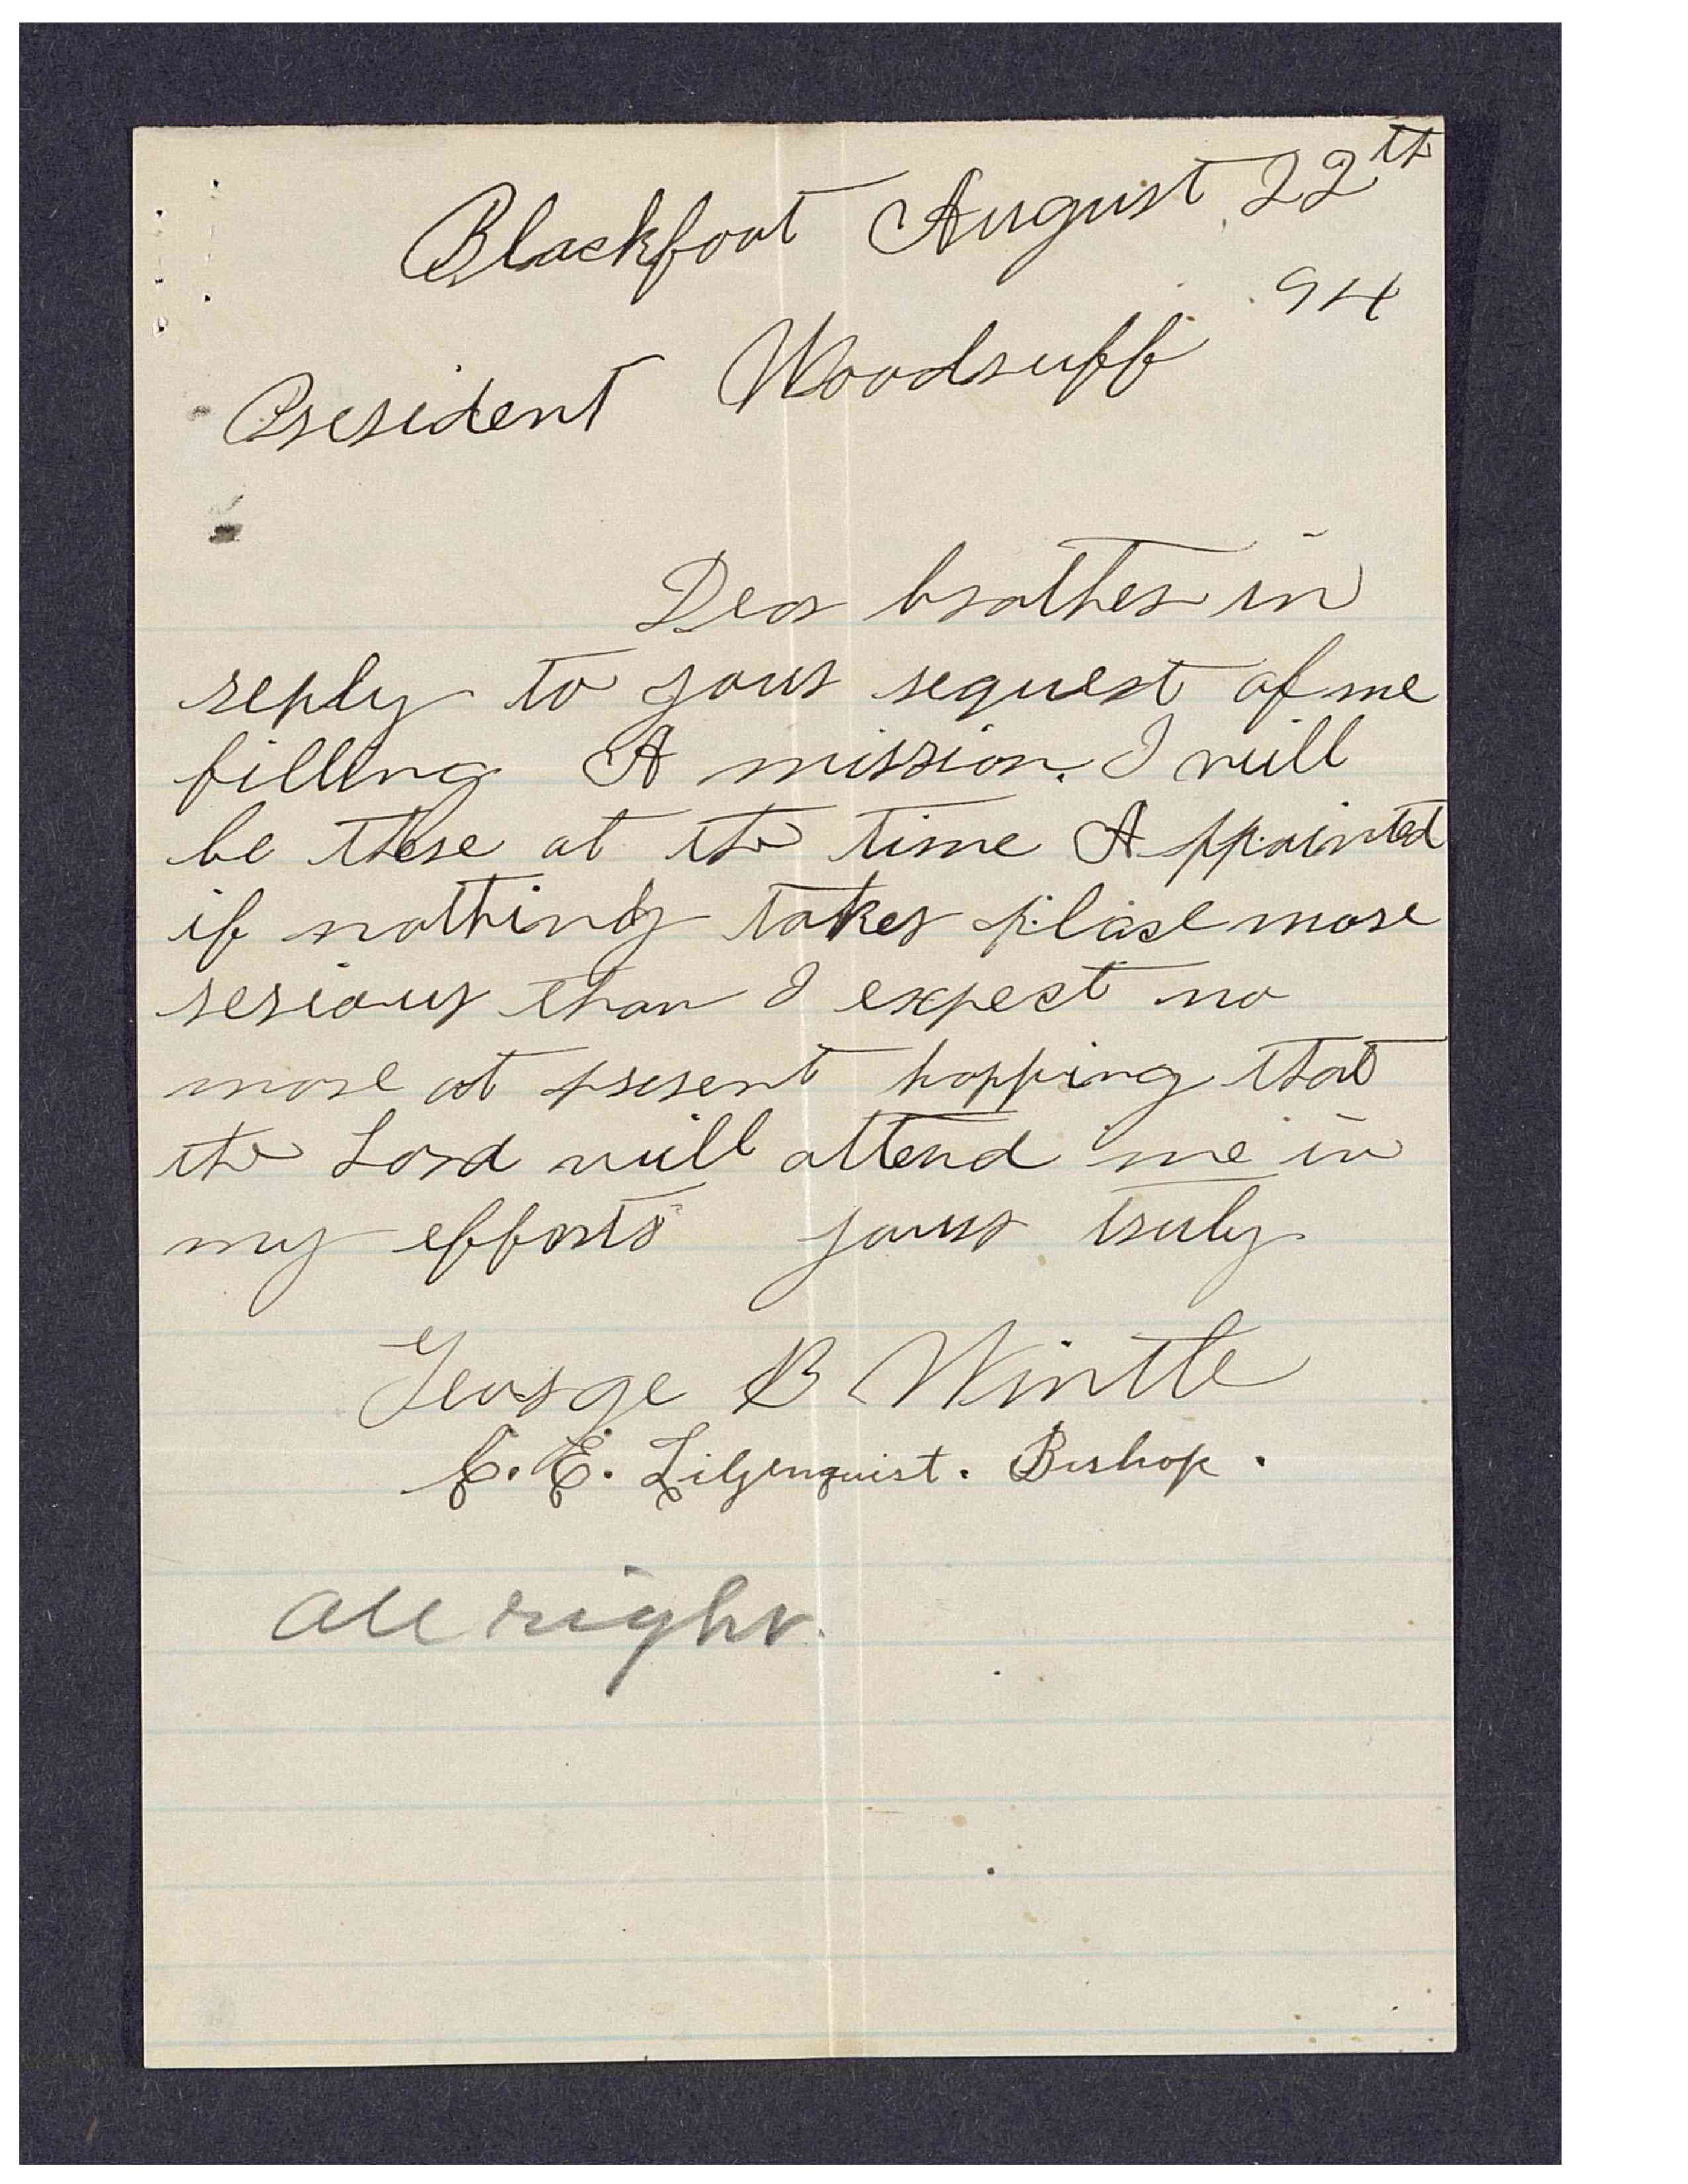 Blackfoot August 22th
94
President Woodruff
Dear brother in
reply to your request of me
filling A mission. I will
be there at the time Appointed
if nothing takes place more
serious than I expect no
more at present hopping that
the Lord will attend me in
my efforts yours truly
George B Wintle
C. E. Liljenquist. Bishop.
All right.